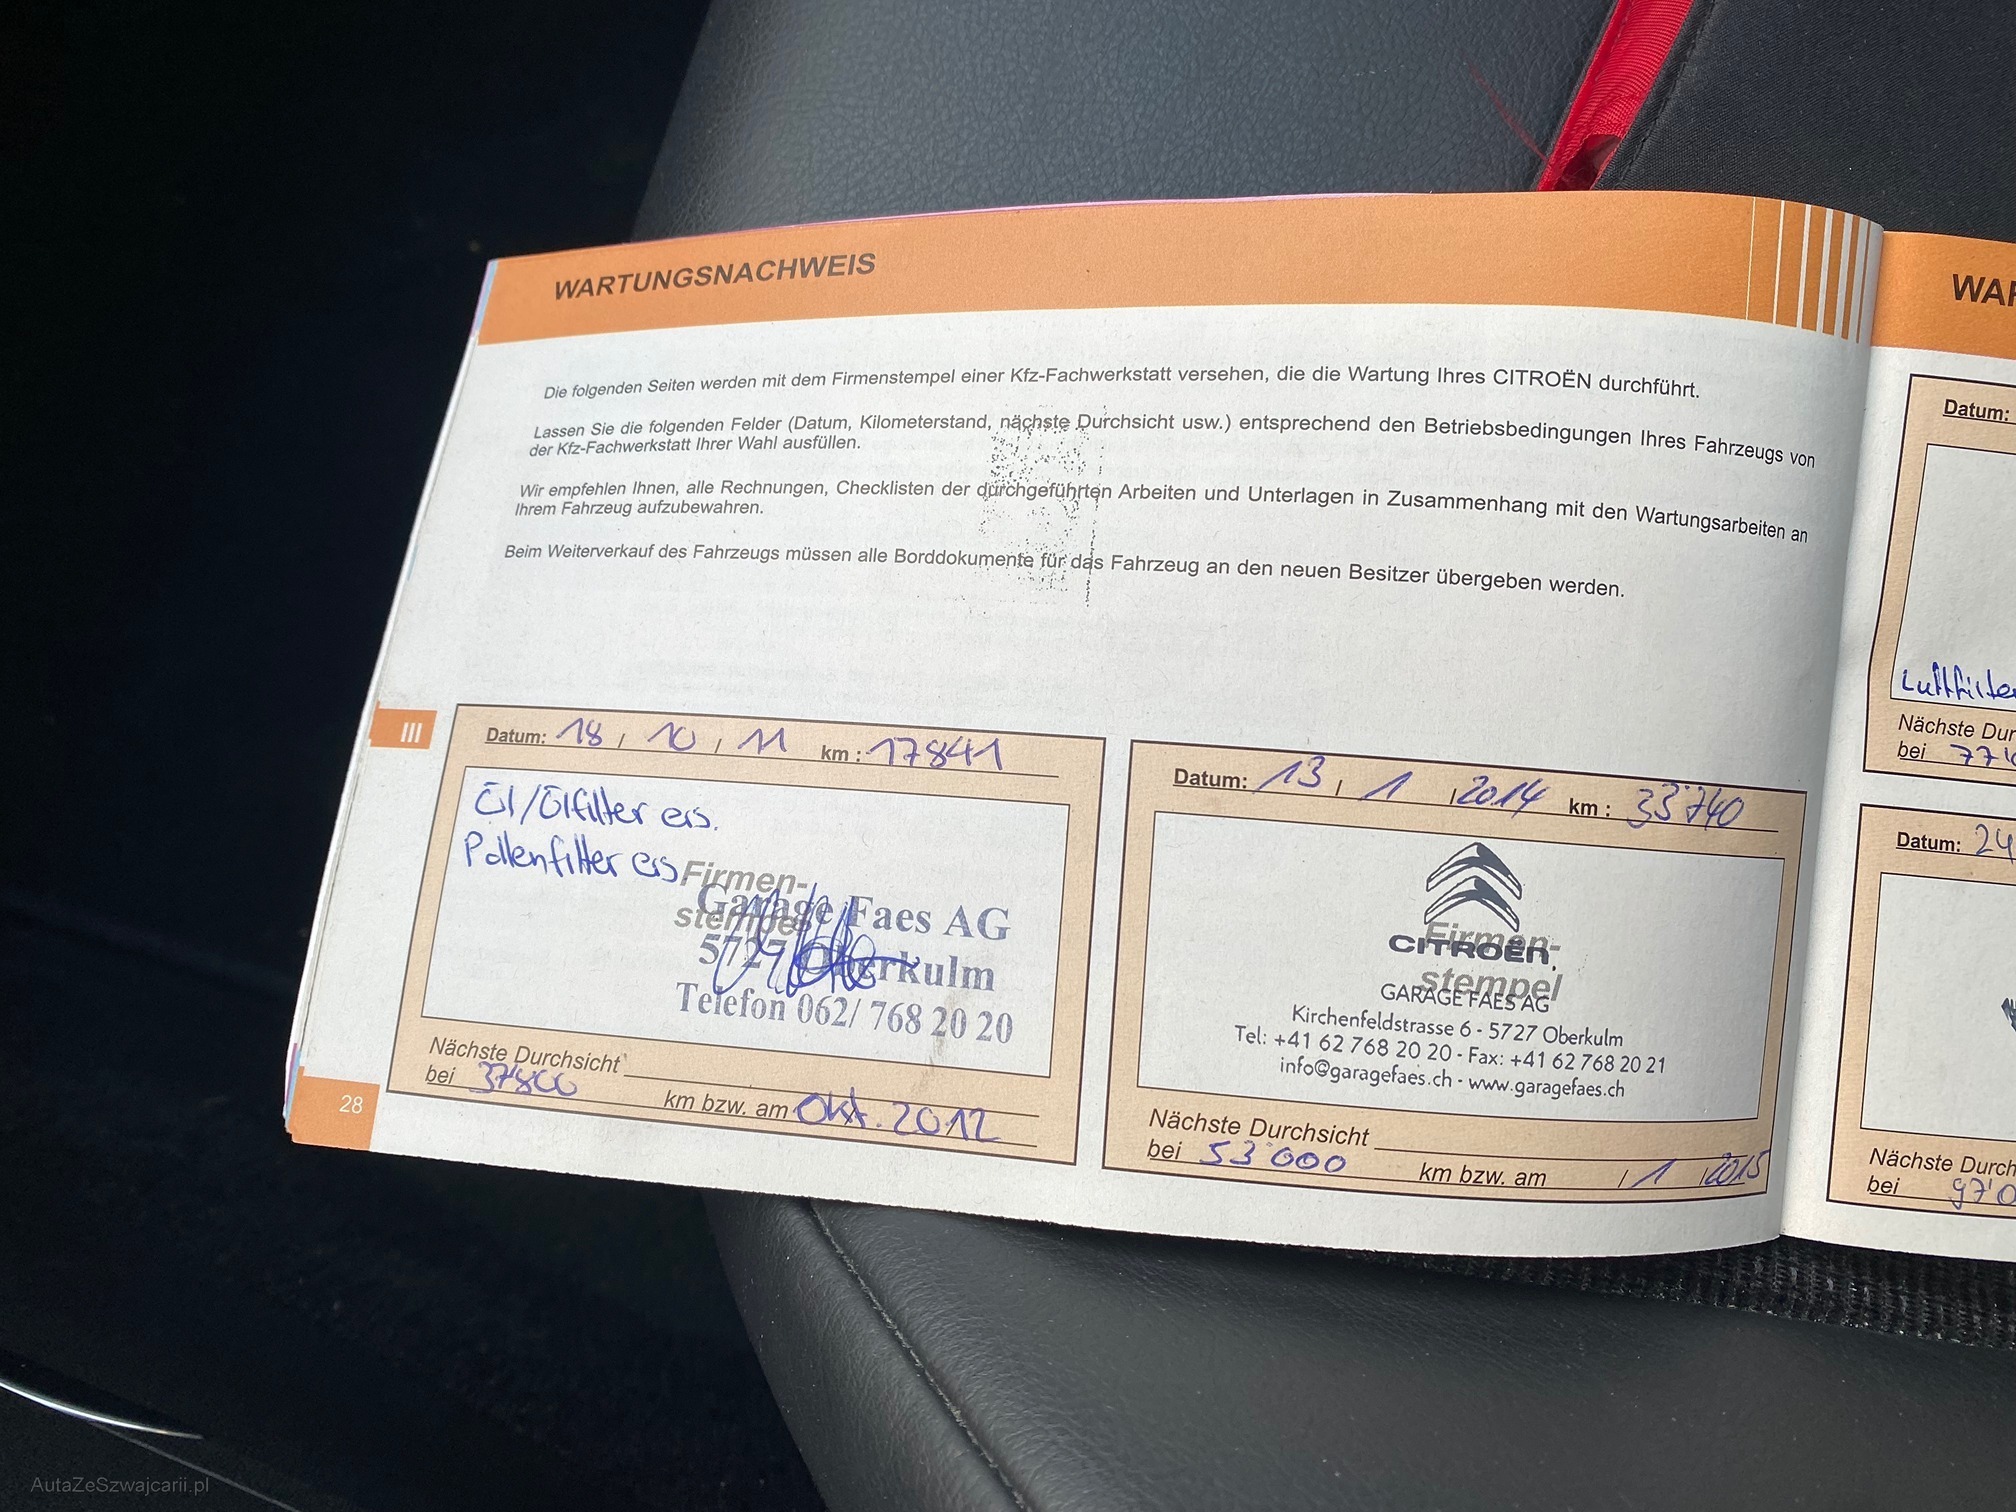 WARTUNGSNACHWEIS
Die folgenden Seiten werden mit dem Firmenstempel einer Kfz-Fachwerkstatt versehen, die die Wartung Ihres CITROËN durchführt.
Lassen Sie die folgenden Felder (Datum, Kilometerstand, nächste Durchsicht usw.) entsprechend den Betriebsbedingungen Ihres Fahrzeugs von
der Kfz-Fachwerkstatt Ihrer Wahl ausfüllen.
Wir empfehlen Ihnen, alle Rechnungen, Checklisten der durchgeführten Arbeiten und Unterlagen in Zusammenhang mit den Wartungsarbeiten an
Ihrem Fahrzeug aufzubewahren.
Beim Weiterverkauf des Fahrzeugs müssen alle Borddokumente für das Fahrzeug an den neuen Besitzer übergeben werden.
III
Datum: 18 / 10 / 11 km : 17841
Öl/Ölfilter ers.
Pollenfilter ers
Firmen-
stempel
Garage Faes AG
5727 Oberkulm
Telefon 062/ 768 20 20
Nächste Durchsicht
bei 37800 km bzw. am Okt. 2012
28
Datum: 13 / 1 / 2014 km : 33'740
Firmen-
CITROËN
stempel
GARAGE FAES AG
Kirchenfeldstrasse 6 - 5727 Oberkulm
Tel: +41 62 768 20 20 - Fax: +41 62 768 20 21
info@garagefaes.ch - www.garagefaes.ch
Nächste Durchsicht
bei 53'000 km bzw. am / 1 / 2015
WAR
Datum:
Luftfilte
Nächste Dur
bei 77
Datum: 24
Nächste Durch
bei 97'0
AutaZeSzwajcarii.pl